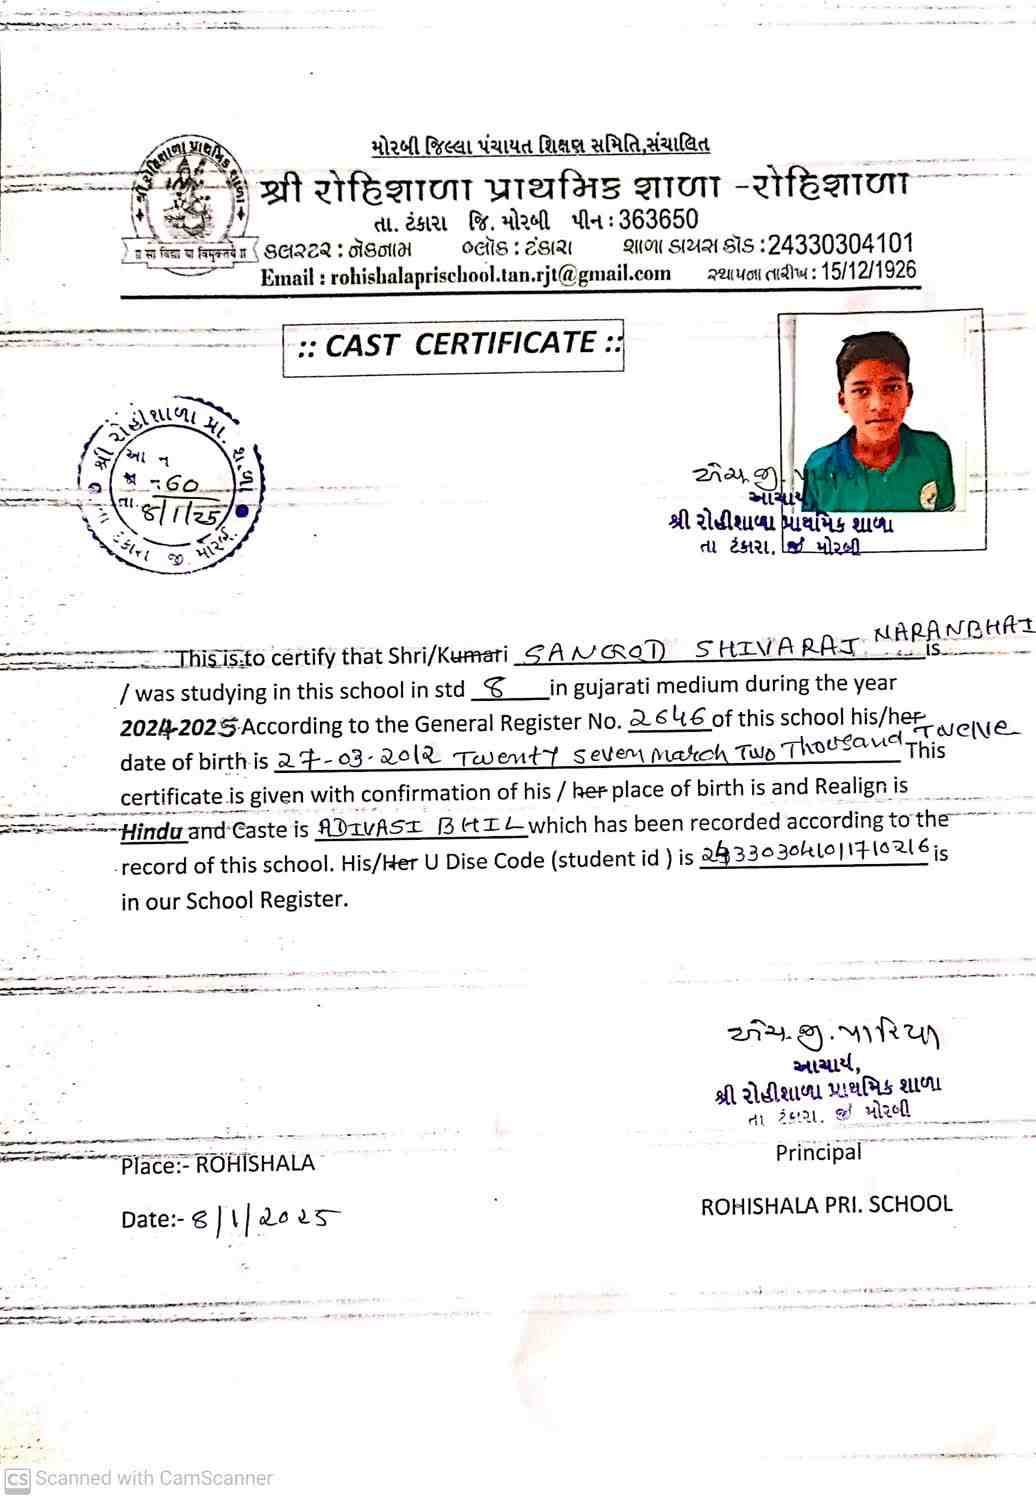 મોરબી જિલ્લા પંચાયત શિક્ષણ સમિતિ,સંચાલિત
શ્રી રોહિશાળા પ્રાથમિક શાળા -રોહિશાળા
તા. ટંકારા જિ. મોરબી પીન : 363650
કલસ્ટર : નેકનામ બ્લોક : ટંકારા શાળા ડાયસ કોડ :24330304101
Email : rohishalaprischool.tan.rjt@gmail.com સ્થાપના તારીખ : 15/12/1926
શ્રી રોહિશાળા પ્રાથમિક શાળા
॥ सा विद्या या विमुक्तये ॥
:: CAST CERTIFICATE ::
શ્રી રોહીશાળા પ્રા. શાળા
આ ન
60
તા. 8/1/25
ટંકારા જી. મોરબી.
એચ.જી.
આચાર્ય,
શ્રી રોહીશાળા પ્રાથમિક શાળા
તા ટંકારા, જી મોરબી
This is to certify that Shri/Kumari SANGOD SHIVARAJ NARANBHAI is
/ was studying in this school in std 8 in gujarati medium during the year
2024-2025 According to the General Register No. 2646 of this school his/her
date of birth is 27-03-2012 Twenty Seven March Two Thousand Twelve This
certificate is given with confirmation of his / her place of birth is and Realign is
Hindu and Caste is ADIVASI BHIL which has been recorded according to the
record of this school. His/Her U Dise Code (student id ) is 243303041011710216 is
in our School Register.
એચ.જી.પારિયા
આચાર્ય,
શ્રી રોહીશાળા પ્રાથમિક શાળા
તા ટંકારા. જી મોરબી
Place:- ROHISHALA
Principal
Date:- 8/1/2025
ROHISHALA PRI. SCHOOL
CS Scanned with CamScanner